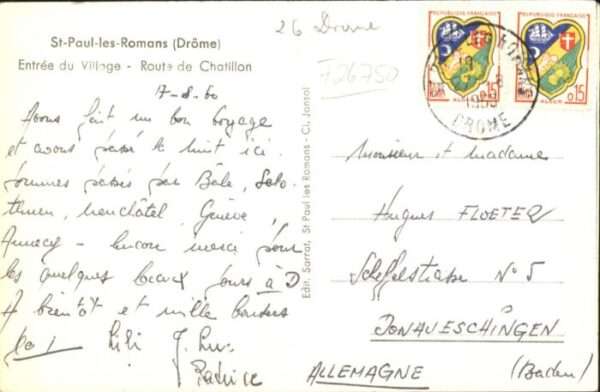 St-Paul-les-Romans (Drôme)
Entrée du Village - Route de Chatillon
17-8-60
Avons fait un bon voyage
et avons passé la nuit ici.
Sommes passés par Bâle, Solo-
thurn, Neuchâtel, Genève,
Annecy - Encore merci pour
les quelques beaux jours à D
A bientôt et mille baisers
Lili
Patrice
Edit. Sarrot, St Paul les Romans - Cl. Jansol
26 Drome
F26750
REPUBLIQUE FRANÇAISE
ALGER
0,15
REPUBLIQUE FRANÇAISE
ALGER
0,15
DROME
Monsieur et Madame
Hugues FLOETER
Scheffelstrasse N° 5
DONAUESCHINGEN
ALLEMAGNE (Baden)